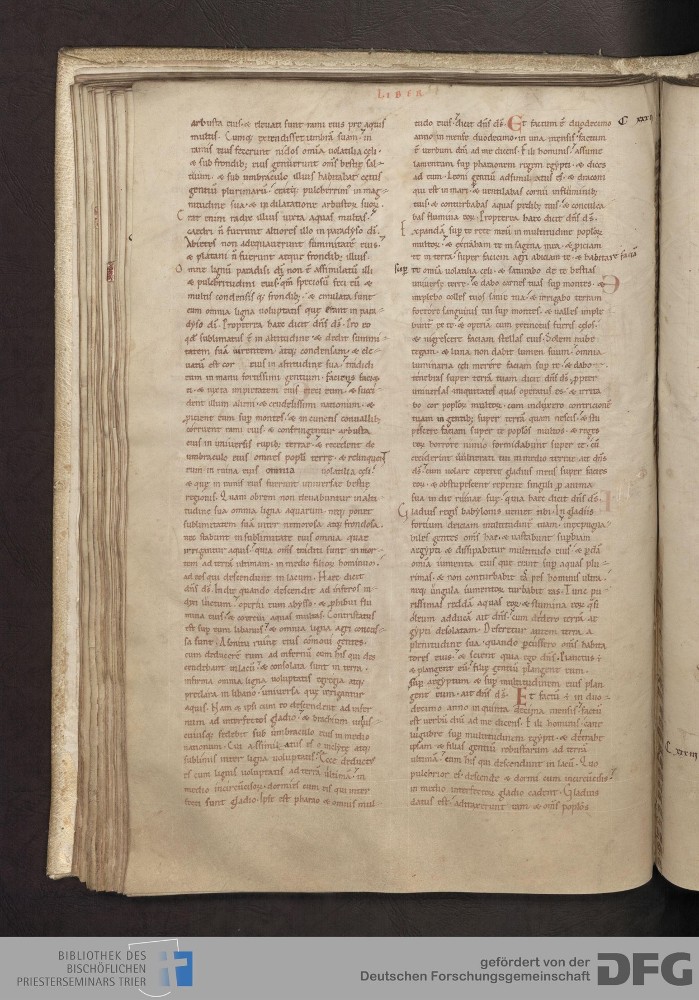 LIBER
arbusta eius & elevati sunt rami eius pre aquis
multis. Cumq; extendisset umbrā suam in
ramis eius fecerunt nidos omīa volatilia cęli.
& sub frondib; eius genuerunt om̄s bestię sal-
tuum. & sub umbraculo illius habitabat cętus
gentiū plurimarū. Eratq; pulcherrim' in mag-
nitudine sua. & in dilatatione arbustoꝝ suoꝝ.
Erat enim radix illius iuxta aquas multas.
Cedri n̄ fuerunt altiores illo in paradyso dī.
Abietes non adęquaverunt summitatē eius.
& platani n̄ fuerunt ęquę frondib; illius.
Omne lignū paradisi dī non ē assimilatū illi
& pulchritudini eius. qm̄ speciosū feci eū &
multis condensisq; frondib;. & emulata sunt
eum omnia ligna voluptatis quę erant in para-
dyso dī. Propterea hęc dicit dn̄s dī. Pro eo
qd' sublimatus ē in altitudine & dedit summi-
tatem suā virentem atq; condensam. & ele-
vatū est cor eius in altitudine sua. tradidi
eum in manu fortissimi gentium. faciens faci&
ei. & iuxta impietatem eius eieci eum. & succi-
dent illum alieni. & crudelissimi nationum. &
proicient eum sup montes. & in cunctis convallib;
corruent rami eius. & confringentur arbusta
eius in universis rupib; terrae. & recedent de
umbraculo eius omnes popli terrę. & relinquent
eum in ruina eius omnia volatilia cęli.
& quę in ramis eius fuerunt universae bestię
regionis. Quam obrem non elevabuntur in alti-
tudine sua omnia ligna aquarum. neq; ponent
sublimitatem suā inter nemorosa atq; frondosa.
nec stabunt in sublimitate eius omnia. quae
irrigantur aquis. quia om̄s traditi sunt in mor-
tem ad terrā ultimam. in medio filioꝝ hominum.
ad eos qui descendunt in lacum. Haec dicit
dn̄s dī. In die quando descendit ad inferos in-
duxi luctum. operui eum abysso. & prohibui flu-
mina eius. & coercui aquas multas. Contristatus
est sup eum libanus. & omnia ligna agri concus-
sa sunt. A sonitu ruinę eius cōmovi gentes.
cum deducerē eum ad infernū cum his qui des-
cendebant in lacū. & consolata sunt in terra
infima omnia ligna voluptatis egregia atq;
pręclara in libano. universa quę irrigantur
aquis. Nam & ipsi cum eo descendent ad infer-
num ad interfectos gladio. & brachium unius-
cuiusq; sedebit sub umbraculo eius in medio
nationum. Cui assimilatus es o inclytę atq;
sublimis inter ligna voluptatis. Ecce deductus
es cum lignis voluptatis ad terrā ultimā. in
medio incircūcisoꝝ. dormies cum eis qui inter-
fecti sunt gladio. Ipse est pharao & omnis mul
titudo eius. dicit dn̄s dī. Et factum ē duodecimo
C xxxii
anno in mense duodecimo in una mensis. factum
ē verbum dn̄i ad me dicens. Fili hominis assume
lamentum sup pharaonem regem egypti. & dices
ad eum. Leoni gentiū assimilatus es. & draconi
qui est in mari. & ventilabas cornu in fluminib;
tuis. & conturbabas aquas pedib; tuis. & conculca-
bas flumina eoꝝ. Propterea haec dicit dn̄s dī.
Expandā sup te rete meū in multitudine poploꝝ
multoꝝ. & extraham te in sagena mea. & proiciam
te in terrā. super faciem agri abiciam te. & habitare faciā
sup te omīa volatilia cęli. & saturabo de te bestias
universę terrę. & dabo carnes tuas sup montes. &
implebo colles tuos sanie tua. & irrigabo terram
foetore sanguinis tui sup montes. & valles imple-
buntur ex te. & operiā cum extinctus fueris cęlos.
& nigrescere faciam stellas eius. Solem nube
tegam. & luna non dabit lumen suum. omnia
luminaria cęli merere faciam sup te. & dabo
tenebras super terrā tuam dicit dn̄s dī.
universas iniquitates quas operatus es. & irrita-
bo cor poploꝝ multoꝝ. cum induxero contritionē
tuam in gentib; super terras quas nescis. & stu-
pescere faciam super te poplos multos. & reges
eoꝝ horrore nimio formidabunt super te. cū
dn̄s dī. cum volare coeperit gladius meus super facies
eoꝝ. & obstupescent repente singuli p anima
sua in die ruinae suę. Quia haec dicit dn̄s dī.
Gladius regis babylonis veniet tibi. In gladiis
fortium deiciam multitudinē tuam. inexpugna-
biles gentes om̄s hae. & vastabunt supbiam
aegypti. & dissipabitur multitudo eius. & pdā
omīa iumenta eius quę erant sup aquas plu-
rimas. & non conturbabit eas pes hominis ultra.
neq; ungula iumentoꝝ turbabit eas. Tunc pu-
rissimas reddā aquas eoꝝ. & flumina eoꝝ q̄si
oleum adducā ait dn̄s. cum dedero terrā ae-
gypti desolatam. Deseretur autem terra a
plenitudine sua. quando pcussero om̄s habita-
tores eius. & scient quia ego dn̄s. Planctus ē
& plangent eū. filię gentiū plangent eum.
Sup aegyptum & sup multitudinem eius plan-
gent eum. ait dn̄s dī. Et factū ē in duo-
decimo anno in quinta decima mensis. factū
est verbū dn̄i ad me dicens. Fili hominis cane
lugubre sup multitudinem egypti. & detrahe
ipsam & filias gentiū robustarum ad terrā
ultimā. cum his qui descendunt in lacū. Quo
pulchrior es. descende & dormi cum incircūcisis.
in medio interfectoꝝ gladio cadent. Gladius
datus est. adtraxerunt eam & om̄s poplos
C xxxiii
BIBLIOTHEK DES
BISCHÖFLICHEN
PRIESTERSEMINARS TRIER
gefördert von der
Deutschen Forschungsgemeinschaft
DFG